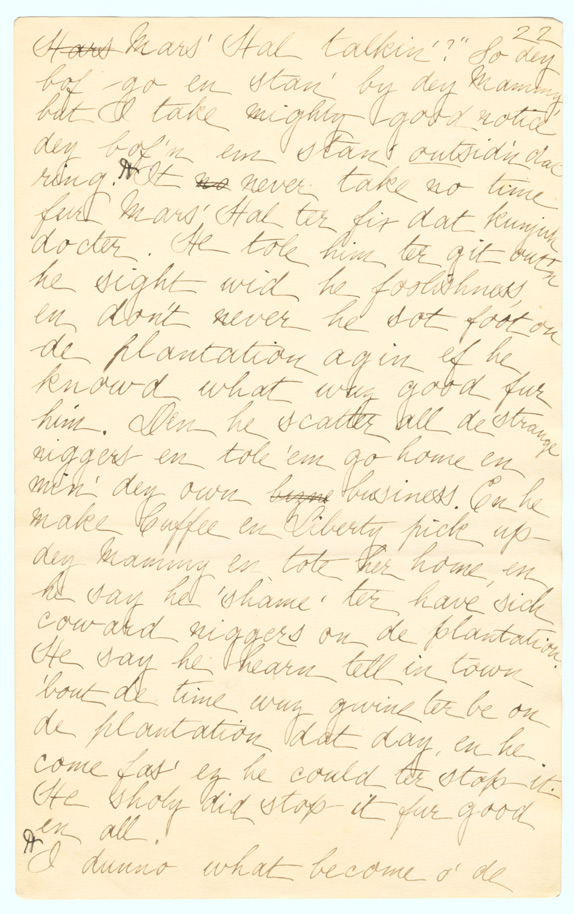 22
Hars Mars' Hal talkin'?" So dey
bof go en stan' by dey Mammy,
but I take mighty good notice
dey bof'n em stan' outsid'n dat
ring. It no never take no time
fur Mars' Hal ter fix dat kunjuh
docter. He tole him ter git outn
he sight wid he foolishness,
en don't never he sot foot on
de plantation agin ef he
knowd what wuz good fur
him. Den he scatter all de strange
niggers en tole 'em go home en
min' dey own bizne business. En he
make Cuffee en Liberty pick up
dey Mammy en tote her home, en
he say he 'shame' ter have sich
coward niggers on de plantation.
He say he hearn tell in town
'bout de time wuz gwine ter be on
de plantation dat day, en he
come fas' ez he could ter stop it.
He sholy did stop it fur good
en all.
I dunno what become o' de